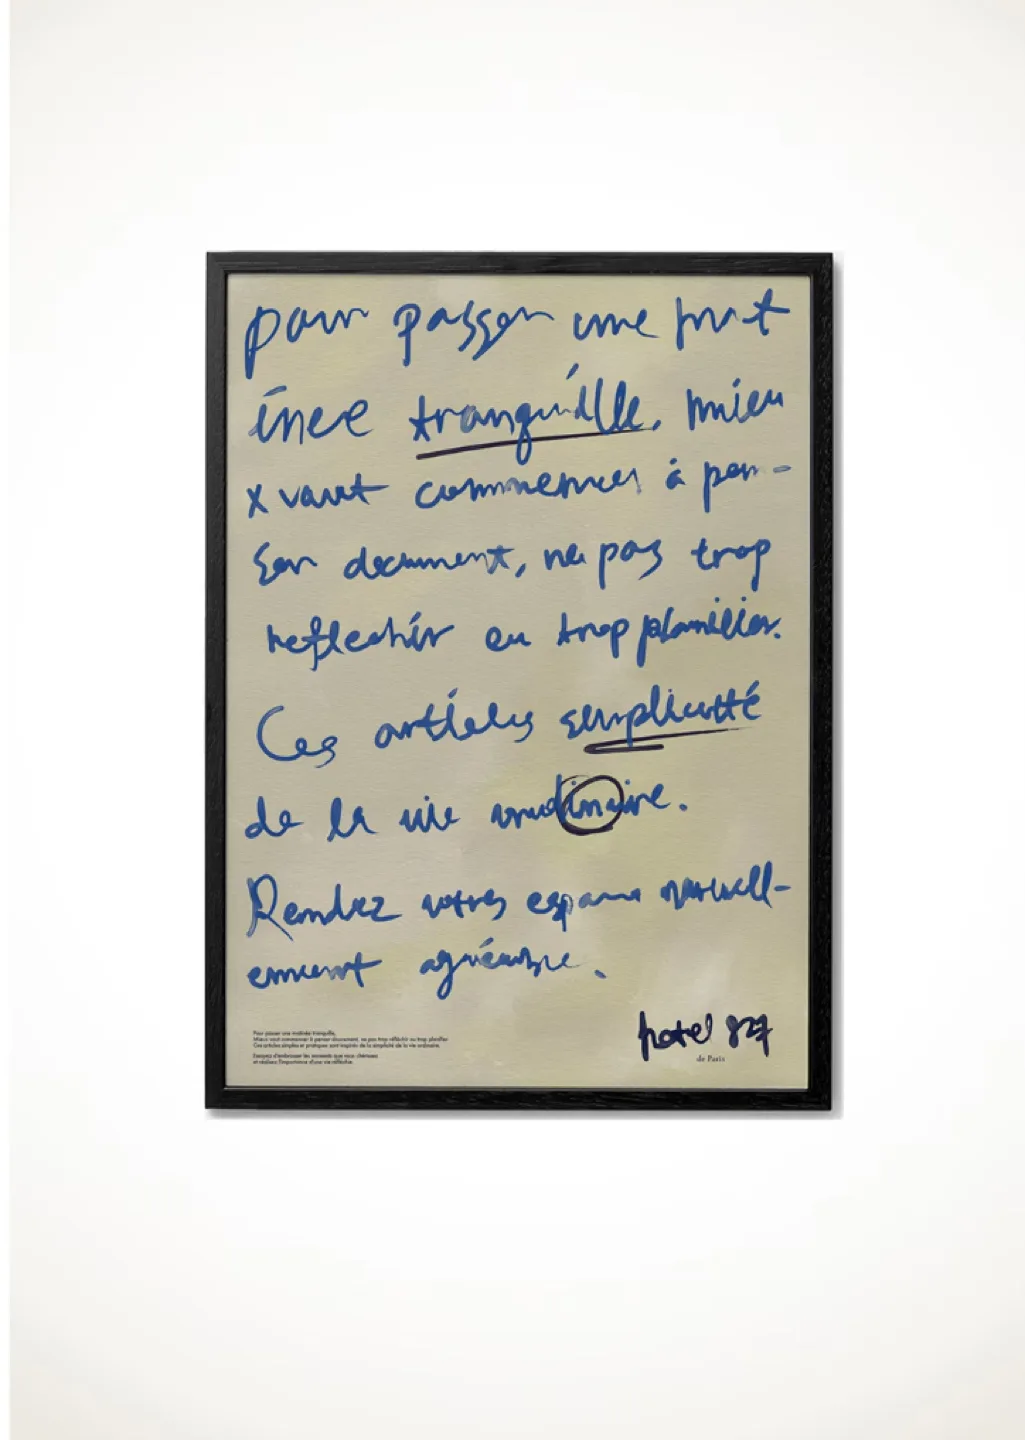 pour passer une mat
inée tranquille, mieu
x vaut commencer à pen-
ser document, ne pas trop
reflechir ou trop planifier.
Ces articles simplicité
de la vie
Rendez votres espace naturell-
ement agréable.
Pour passer une matinée tranquille,
Mieux vaut commencer à penser doucement, ne pas trop réfléchir ou trop planifier
Ces articles simples et pratiques sont inspirés de la simplicité de la vie ordinaire.
Essayez d'embrasser les moments que vous chérissez
et réalisez l'importance d'une vie réfléchie.
hotel 827
de Paris